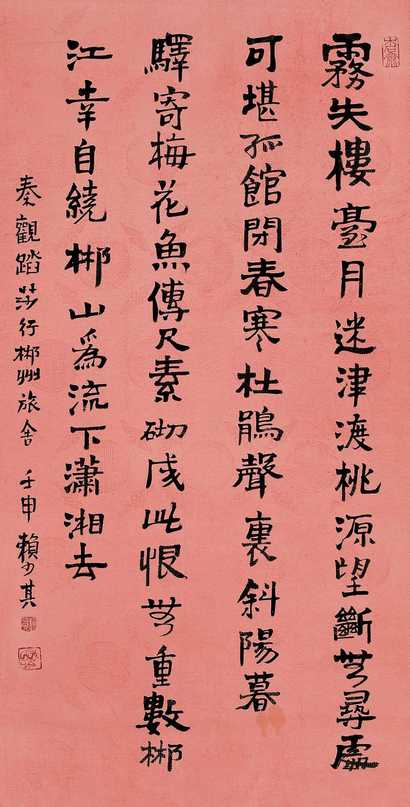 霧失樓臺月迷津渡桃源望斷无尋處
可堪孤館閉春寒杜鵑聲裏斜陽暮
驛寄梅花魚傳尺素砌成此恨无重數郴
江幸自繞郴山為流下瀟湘去
秦觀踏莎行郴州旅舍 壬申賴少其